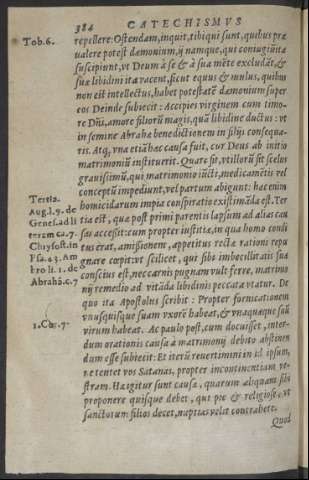 384 CATECHISMVS
Tob. 6.
repellere: Ostendam, inquit, tibi qui sunt, quibus præ
ualere potest dæmonium, ij namque, qui coniugiũ ita
suscipiunt, vt Deum à se & à sua mẽte excludãt, &
suæ libidini ita vacent, sicut equus & mulus, quibus
non est intellectus, habet potestatẽ dæmonium super
eos Deinde subiecit: Accipies virginem cum timo-
re Dñi, amore filiorũ magis, quã libidine ductus: vt
in semine Abrahæ benedictionem in filijs consequa-
ris. Atq; vna etiã hæc causa fuit, cur Deus ab initio
matrimoniũ instituerit. Quare fit, vt illorũ sit scelus
grauissimũ, qui matrimonio iũcti, medicamẽtis vel
conceptũ impediunt, vel partum abigunt: hæc enim
homicidarum impia conspiratio existimãda est. Ter
tia est, quæ post primi parentis lapsum ad alias cau
sas accessit: cum propter iustitiæ, in qua homo condi
tus erat, amissionem, appetitus rectæ rationi repu
gnare cœpit: vt scilicet, qui sibi imbecillitatis suæ
conscius est, nec carnis pugnam vult ferre, matrimo
nij remedio ad vitãda libidinis peccata vtatur. De
quo ita Apostolus scribit: Propter fornicationem
vnusquisque suam vxorẽ habeat, & vnaquæque suũ
virum habeat. Ac paulo post, cum docuisset, inter-
dum orationis causa à matrimonij debito abstinen
dum esse subiecit: Et iterũ reuertimini in id ipsum,
ne tentet vos Satanas, propter incontinentiam ve-
stram. Hæ igitur sunt causæ, quarum aliquam sibi
proponere quisque debet, qui pie & religiose, vt
sanctorum filios decet, nuptias velit contrahere.
Quod
Tertia.
Aug. l. 9. de
Genes. ad li
teram ca. 7.
Chrysost. in
Psa. 43. Am
bro li. 1. de
Abrahã. c. 7
1. Cor. 7.